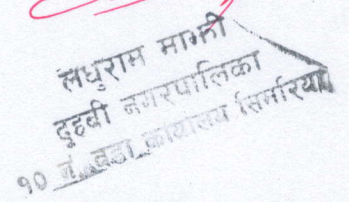 लधुराम माझी
दुहवी नगरपालिका
१० नं. वडा कार्यालय सिमरिया